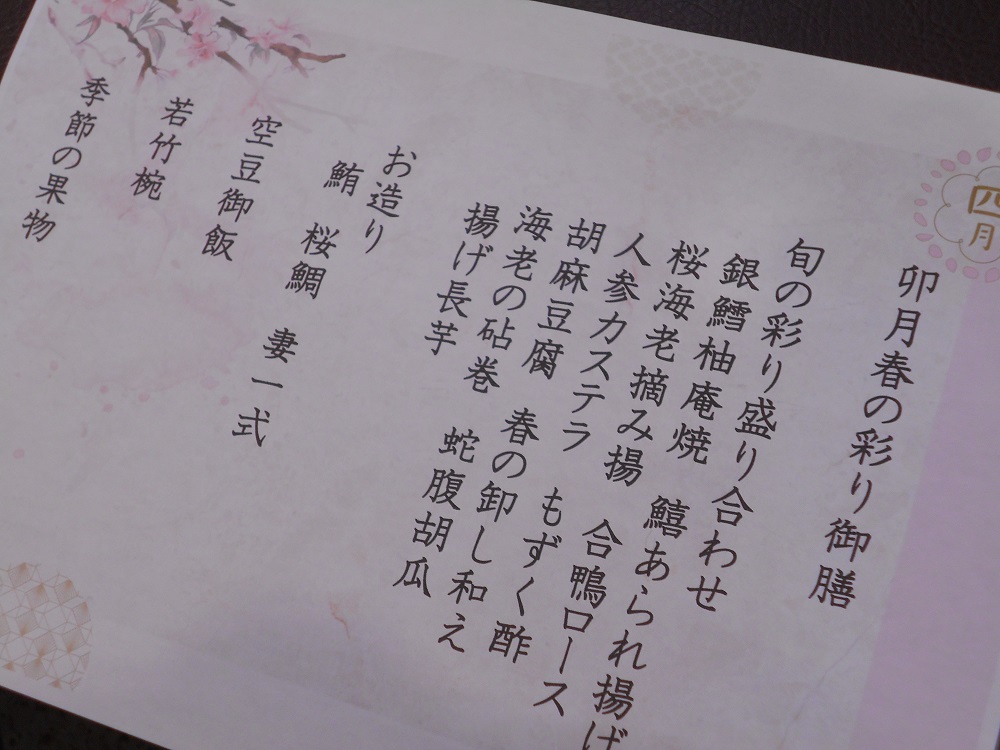 四月
卯月春の彩り御膳
旬の彩り盛り合わせ
銀鱈柚庵焼
桜海老摘み揚　鱚あられ揚げ
人参カステラ　合鴨ロース
胡麻豆腐　もずく酢
海老の砧巻　春の卸し和え
揚げ長芋　蛇腹胡瓜
お造り
鮪　桜鯛　妻一式
空豆御飯
若竹椀
季節の果物